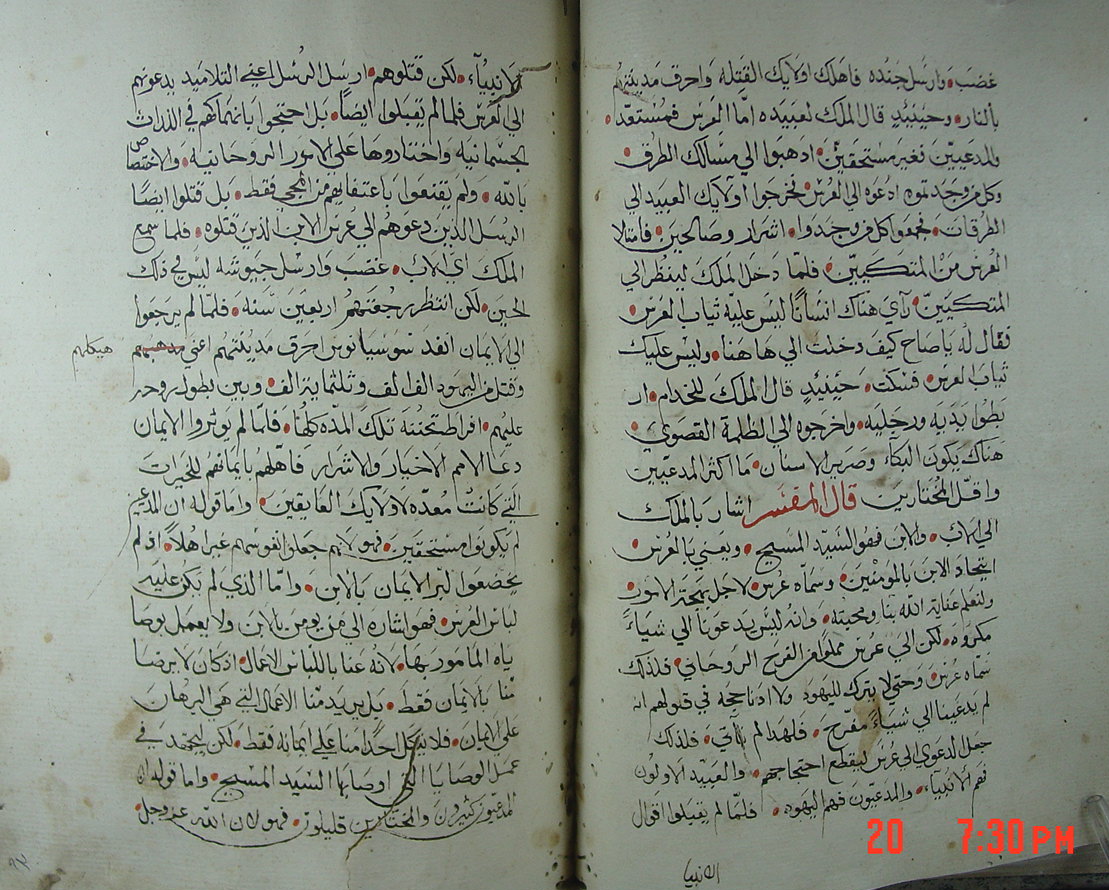 غضب وارسل جنده فاهلك اولايك القتله واحرق مدينتهم
بالنار وحينيدٍ قال الملك لعبيده امّا العرس فمُستعدّ
والمدعيين فغير مستحقين اذهبوا الي مسالك الطرق
وكل من وجدتموه ادعوه الي العرس فخرجوا اولايك العبيد الي
الطرقات فجمعوا كل من وجدوا اشرار وصالحين فامتلا
العرس من المتكيين فلمّا دخل الملك لينظر الي
المتكيين رآي هناك انسانًا ليس عليه ثياب العرس
فقال له ياصاح كيف دخلت الي هاهنا وليس عليك
ثياب العرس فسكت حينيدٍ قال الملك للخدام ار
بطوا يديه ورجليه واخرجوه الي الظلمة القصوي
هناك يكون البكاء وصرير الاسنان ما اكثر المدعيين
واقل المختارين قال المفسر اشار بالملك
الي الاب والابن فهو السيد المسيح ويعني بالعرس
اتحاد الابن بالمومنين وسماه عرس لاجل بهجة الامور
ولنعلم عناية الله بنا ومحبته وانه ليس يدعونا الي شياءً
مكروه لكن الي عرس مملوا من الفرح الروحاني فلذلك
سماه عرس وحتي لا يترك لليهود ولا ادنا حجه في قولهم انه
لم يدعينا الي شياءً مفرح فلهدا لم ناتي فلذلك
جعل الدعوي الي عرس ليقطع احتجاجهم والعبيد الاولون
فهم الانبياء والمدعيون فهم اليهود فلمّا لم يقبلوا اقوال
الانبيا
الانبياء لكن قتلوهم ارسل الرسل اعني التلاميد يدعوهم
الي العرس فلما لم يقبلوا ايضًا بل احتجوا بانهماكهم في الذات
الجسمانيه واختاروها علي الامور الروحانيه والاختصاص
بالله ولم يقنعوا باعتفايهم من المجي فقط بل قتلوا ايضًا
الرسل الذين دعوهم الي عرس الابن الذين قتلوه فلما سمع
الملك اي الاب غضب وارسل جيوشه ليس في ذلك
الحين لكن انتظر رجعتهم اربعين سنه فلمّا لم يرجعوا
الي الايمان انفد سوسيانوس احرق مدينتهم اعني هيكلهم
وقتل من اليهود الف الف وثلثماية الف وبين بطول روحه
عليهم افراط تحننه تلك المده كلها فلمّا لم يوثروا الايمان
دعا الامم الاخيار والاشرار فاهلهم بايمانهم للخيرات
التي كانت معدّه لاولايك الفايقين واما قوله ان المدعيين
لم يكونوا مستحقين فهو لانهم جعلوا نفوسهم غير اهلاً اذ لم
يخضعوا الي الايمان بالابن وامّا الذي لم يكن عليه
لباس العرس فهو اشاره الي من يومن بالابن ولا يعمل بوصا
ياه المامور بها لانه عنا باللباس الاعمال اذ كان لا يرضا
منا بالايمان فقط بل يريد منا الاعمال التي هي البرهان
علي الايمان فلا يتكل احدًا منا علي ايمانه فقط لكن ليجتهد في
عمل الوصايا التي اوصا بها السيد المسيح واما قوله ان
المدعيون كثيرون والمختارين قليلون فهو لان الله عز وجل
20 7:30 PM